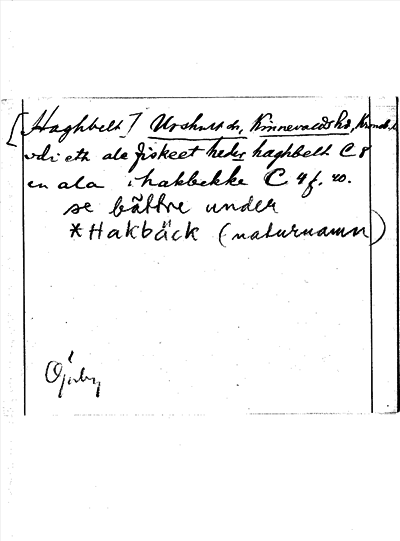 [Haghbelt] Urshult sn, Kinnevalds hd, Kronob. l.
vdi eth ale fiskeet heder haghbelt C 8
en ala i hakbekke C 4 f. 20.
se bättre under
*Hakbäck (naturnamn)